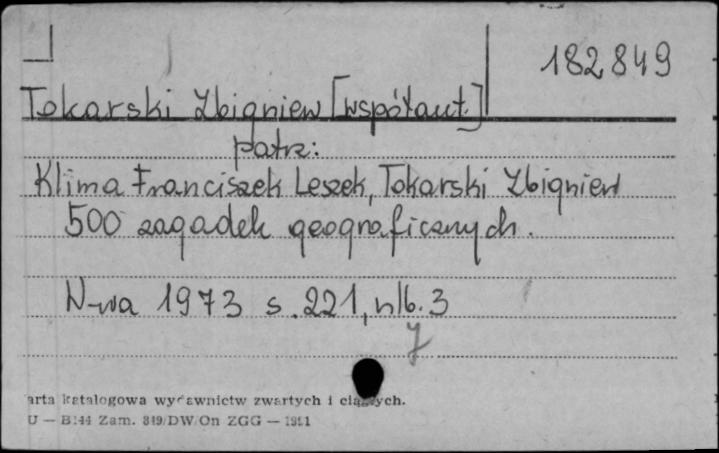 182849
Tokarski Zbigniew [współaut.]
patrz:
Klima Franciszek Leszek, Tokarski Zbigniew
500 zagadek geograficznych.
W-wa 1973 s. 221, nlb. 3
7
arta katalogowa wydawnictw zwartych i ciągłych.
U — B 144 Zam. 849/DW/On ZGG — 1951